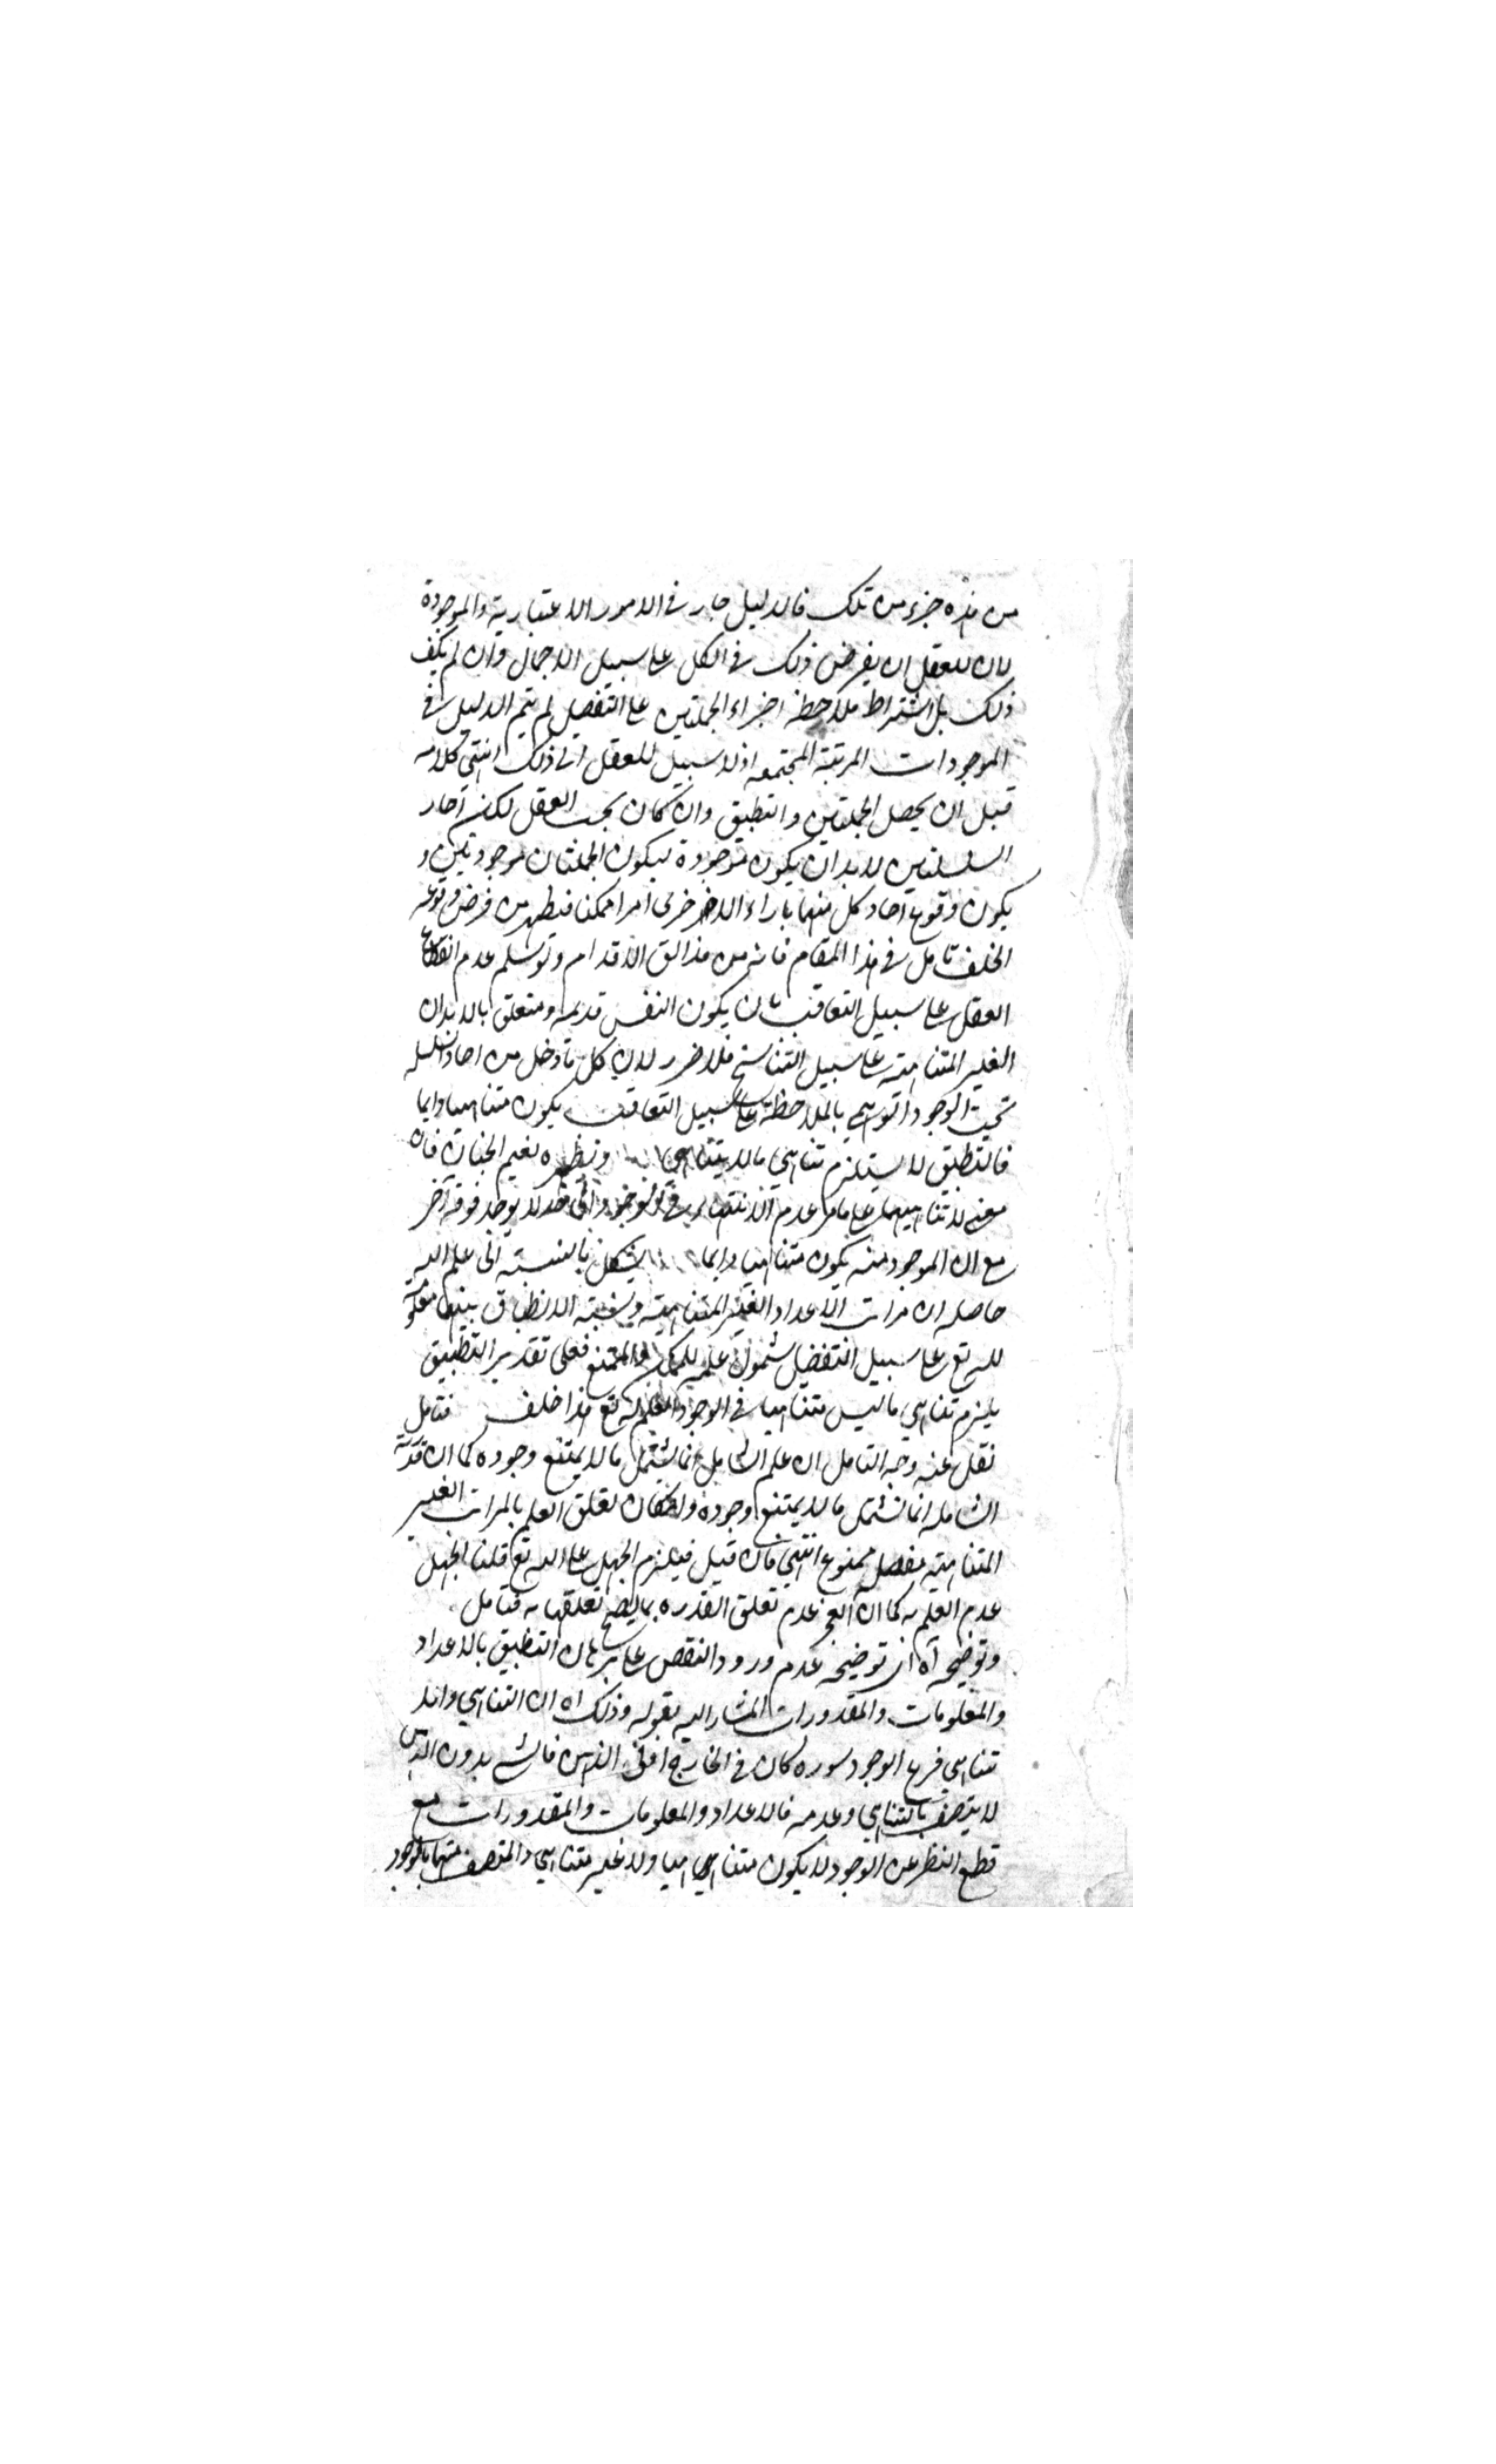 من هذه جزء من تلك فالدليل جار في الامور الاعتبارية والموجودة
لان للعقل ان يفرض ذلك في الكل على سبيل الاجمال وان لم يكف
ذلك بل اشتراط ملاحظة اجزاء الجملتين على التفصيل لم يتم الدليل في
الموجودات المرتبة المجتمعه اذ لا سبيل للعقل الى ذلك انتهى كلامه
قبل ان يحصل الجملتين والتطبيق وان كان بحسب العقل لكن آحاد
السلسلتين لا بد ان يكون موجودة ليكون الجملتان موجودتين و
يكون وقوع آحاد كل منهما بازاء الاخرى امرا ممكنا فيظهر من فرض وقوعه
الخلف تامل في هذا المقام فانه من مذالق الاقدام ولو سلم عدم انقطاع
العقل على سبيل التعاقب بان يكون النفس قديمه ومتعلق بالابدان
الغير المتناهيته على سبيل التناسخ فلا ضرر لان كل ما دخل من احاد السلسله
تحت الوجود التوهمي بالملاحظة على سبيل التعاقب يكون متناهيا دايما
فالتطبيق لا يستلزم تناهي ما لا يتناهى ونظيره نعيم الجنان فان
معنى لا تناهيهما على ما مر عدم الانتهاء في الوجود الى حد لا يوجد فوقه آخر
مع ان الموجود منه يكون متناهيا دايما يشكل بالنسبته الى علم الله
حاصله ان مراتب الاعداد الغير المتناهيته ونسبته الانطباق بينها معلومة
لله تع على سبيل التفصيل شمول علمه للممكن والممتنع فعلى تقدير التطبيق
يلزم تناهي ما ليس متناهيا في الوجود العلم له تع هذا خلف فتامل
نقل عنه وجه التامل ان علم الشامل انما يشتمل ما لا يمتنع وجوده كما ان قدرته
الشامله انما تشتمل ما لا يمتنع وجوده وامكان تعلق العلم بالمراتب الغير
المتناهيته مفصل ممنوع انتهى فان قيل فيلزم الجهل على الله تع قلنا الجهل
عدم العلم به كما ان العجز عدم تعلق القدره بما يصح تعلقها به فتامل
وتوضيحه آه اى توضيحه عدم ورود النقص على برهان التطبيق بالاعداد
والمعلومات والمقدورات المشار اليه بقوله وذلك اه ان التناهي واللا
تناهي فرع الوجود سوره كان في الخارج او فى الذهن فالشے بدون الذهن
لا يتصف بالتناهي وعدمه فالاعداد والمعلومات والمقدورات مع
قطع النظر عن الوجود لا يكون متناهيا ولا غير متناهي والمتصف منها بالوجود